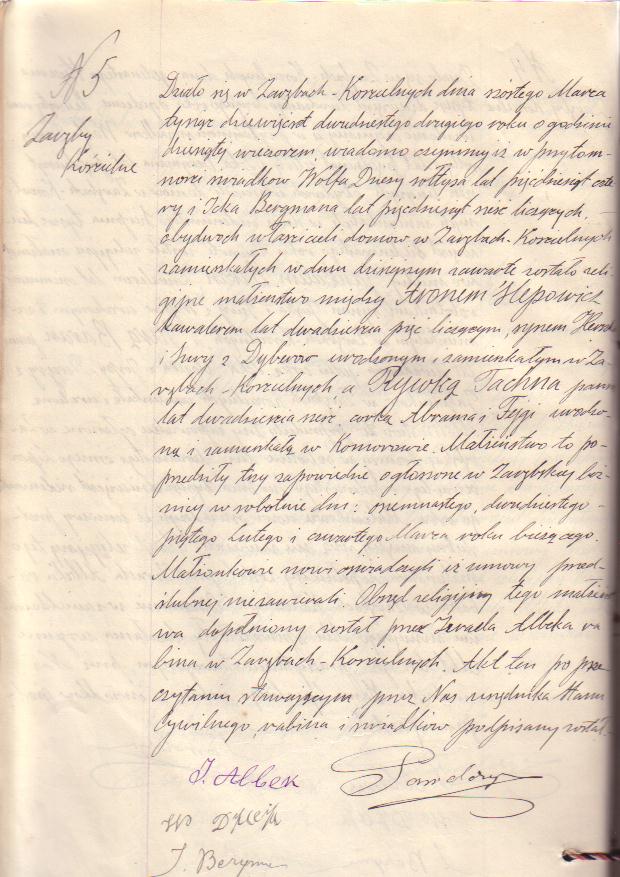 N 5
Zaręby
Kościelne
Działo się w Zarębach-Kościelnych dnia szóstego Marca
tysiąc dziewięćset dwudziestego drugiego roku o godzinie
wieczorem wiadomo czynimy iż w przytom-
ności świadków Wolfa sołtysa lat pięćdziesiąt czte-
ry i Icka Bergmana lat pięćdziesiąt sześć liczących,
obydwoch właścicieli domów w Zarębach-Kościelnych
zamieszkałych w dniu dzisiejszym zawarte zostało reli-
gijne małżeństwo między
kawalerem lat dwadzieścia pięć liczącym, synem
i z urodzonym i zamieszkałym w Za-
rębach-Kościelnych, a Rywką Tachna panną
lat dwadzieścia sześć, córką Abrama i Fejgi urodzo-
ną i zamieszkałą w Komorowie. Małżeństwo to po-
przedziły trzy zapowiedzie ogłoszone w Zarębskiej boż-
nicy w sobotnie dni: osiemnastego, dwudziestego-
piątego Lutego i czwartego Marca roku bieżącego.
Małżonkowie nowi oświadczyli iż umowy przed-
ślubnej niezawierali. Obrzęd religijny tego małżeńst
wa dopełniony został przez Izraela Albeka ra
bina w Zarębach-Kościelnych. Akt ten po prze
czytaniu stawającym, przez Nas urzędnika Stanu
Cywilnego, rabina i świadków podpisany został.
J. Albek
J. Bergman